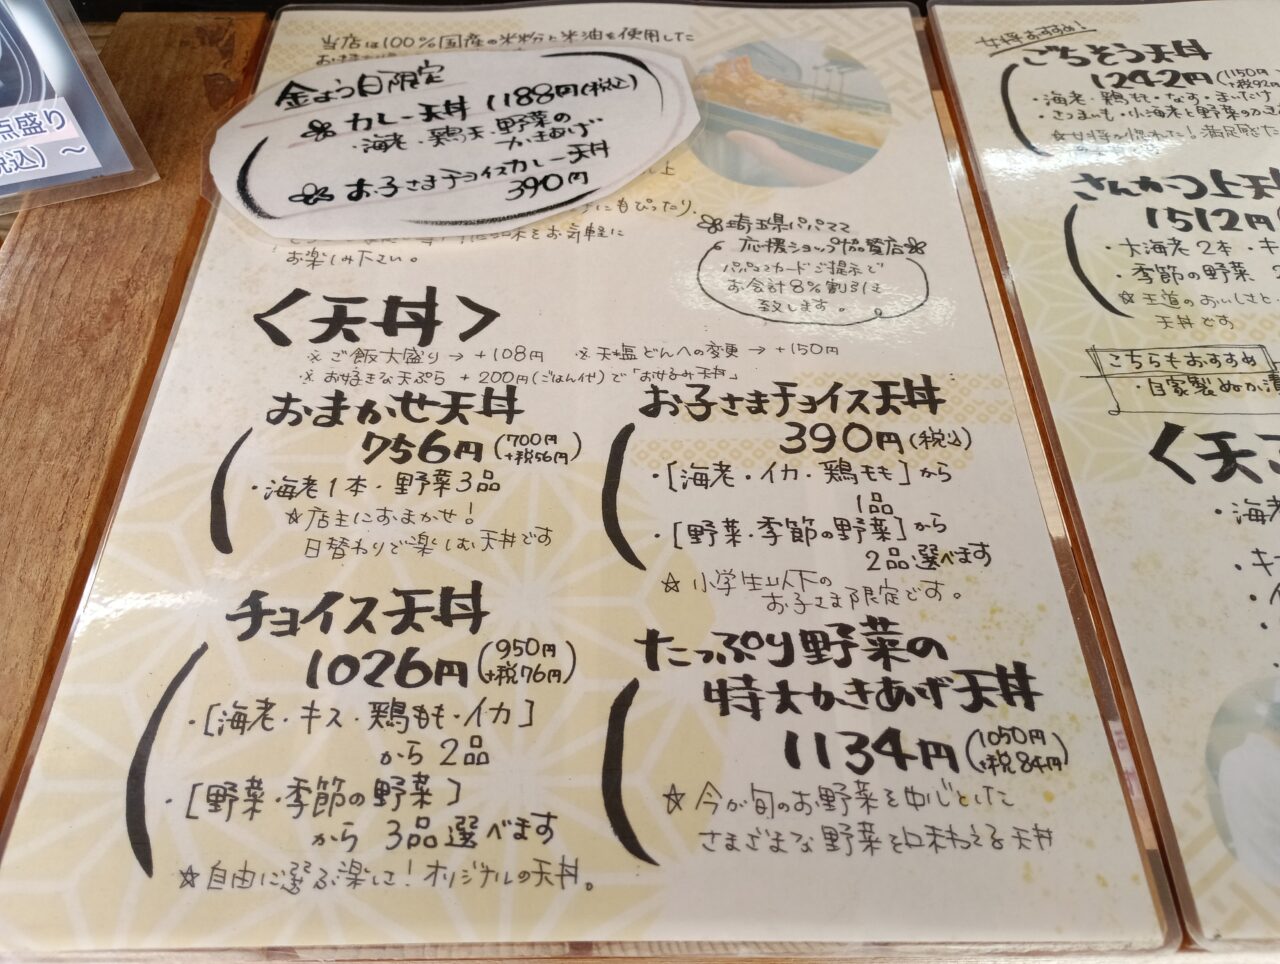 点盛り
税込）～
当店は100％国産の米粉と米油を使用した
金よう日限定
カレー天丼 1188円(税込)
・海老・鶏天・野菜の
かきあげ
お子さまチョイスカレー天丼
390円
にもぴったり。
をお気軽に
お楽しみ下さい。
埼玉県パパママ
応援ショップ協賛店
パパママカードご提示で
お会計8％割引き
致します。
〈天丼〉
※ご飯大盛り→+108円 ※天塩どんへの変更→+150円
※お好きな天ぷら+200円(ごはん付)で「お好み天丼」
おまかせ天丼
756円(700円+税56円)
・海老1本・野菜3品
☆店主におまかせ!
日替わりで楽しむ天丼です
チョイス天丼
1026円(950円+税76円)
・[海老・キス・鶏もも・イカ]
から2品
・[野菜・季節の野菜]
から3品選べます
☆自由に選ぶ楽しさ!オリジナルの天丼。
お子さまチョイス天丼
390円(税込)
・[海老・イカ・鶏もも]から
1品
・[野菜・季節の野菜]から
2品選べます
☆小学生以下の
お子さま限定です。
たっぷり野菜の
特大かきあげ天丼
1134円(1050円+税84円)
☆今が旬のお野菜を中心とした
さまざまな野菜を味わえる天丼
女将おすすめ!
ごちそう天丼
1242円(1150円+税92円
・海老・鶏もも・なす・まいたけ
・さつまいも・小海老と野菜のかき
☆女将も惚れた!満足感た
さんかつ上天丼
1512円
・大海老2本・キ
・季節の野菜2
☆王道のおいしさと、
天丼です
こちらもおすすめ
・自家製ぬか漬
〈天
・海
・キ
・イ